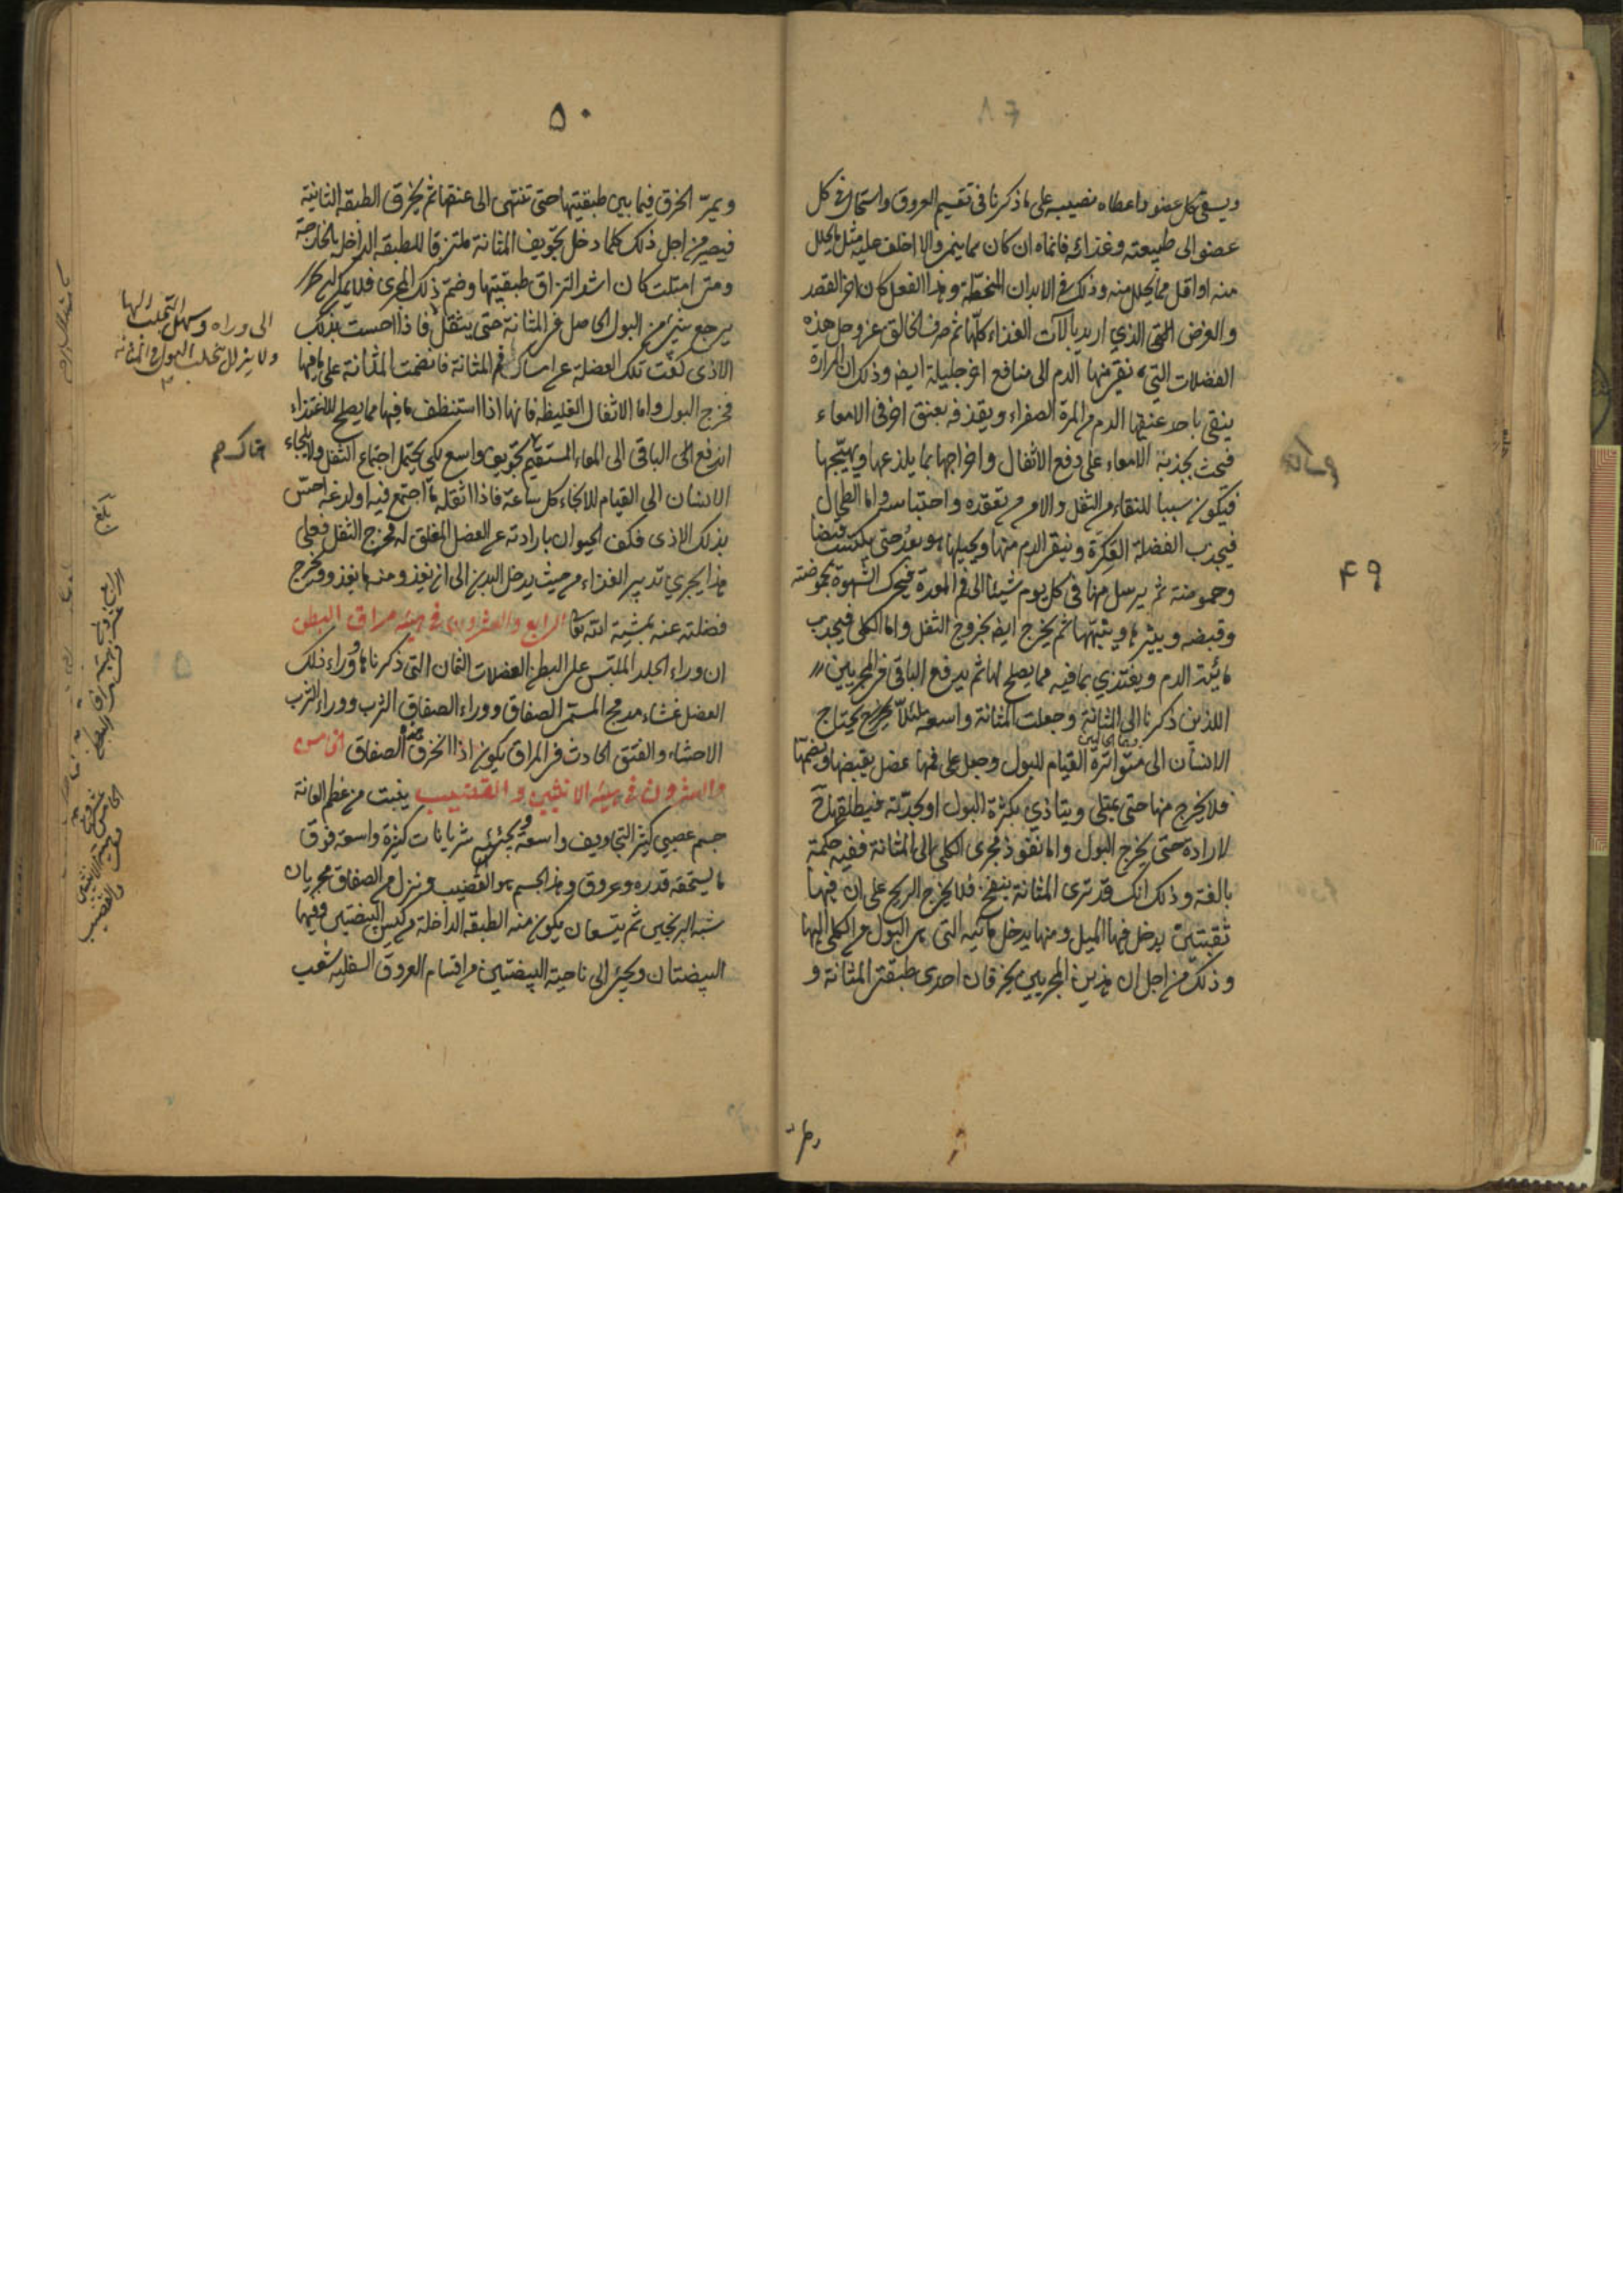 ٤٩
ويسقي كل عضو واعطاه نصيبه على ما ذكرنا في تقسيم العروق واستحال في كل
عضو الى طبيعته وغذائه فانماه ان كان مما ينمي والا اخلف عليه مثل ما تحلل
منه او اقل مما تحلل منه وذلك في الابدان المنحطة وهذا الفعل كان اخر القصد
والغرض الذي اريد بآلات الغذاء كلها ثم صرف الخالق عز وجل هذه
الفضلات التي نقي منها الدم الى منافع اخر جليلة ايضا وذلك ان المرارة
ينقي باحد عنقيها الدم من المرة الصفراء ويقذفه بعنق اخر في الامعاء
فيحث بحدته الامعاء على دفع الاثفال واخراجها بما يلذعها ويهيجها
فيكون سببا للنقاء من الثفل والامن من تعقده واحتباسه واما الطحال
فيجذب الفضلة العكرة وينقي الدم منها ويحيلها هو بعد حتى يكتسب قبضا
وحموضة ثم يرسل منها في كل يوم شيئا الى فم المعدة فيحرك الشهوة بحموضته
وقبضه ويثيرها وينبهها ثم يخرج ايضا بخروج الثفل واما الكلى فيجذب
مائية الدم ويغتذي بما فيه مما يصلح لها ثم يدفع الباقي في المجريين
اللذين ذكرنا الى المثانة وجعلت المثانة واسعة لئلا يحتاج
الانسان الى متواترة القيام للبول وجعل على فمها عضل يقبضها ويضمها
فلا يخرج منها حتى يمتلي ويتاذي بكثرة البول او بحدته فيطلقه
لارادة حتى يخرج البول واما نفوذ مجرى الكلى الى المثانة ففيه حكمة
بالغة وذلك انك قد ترى المثانة ينفخ فلا يخرج الريح على ان فيها
ثقبتين يدخل فيها الميل ومنها يدخل مائية التي هي البول من الكلى اليها
وذلك من اجل ان هذين المجريين يخرقان احدى طبقتي المثانة و
٥٠
ويمر الخرق فيما بين طبقتيها حتى تنتهي الى عنقها ثم يخرق الطبقة الثانية
فيصير من اجل ذلك كلما دخل تجويف المثانة ملتزقا للطبقة الداخل بالخارجة
ومتى امتلت كان اشد التزاق طبقتيها وضم ذلك المجرى فلا يمكن لذلك
يرجع شيء من البول الحاصل في المثانة حتى يثقل فاذا احست بذلك
الاذى كفت تلك العضلة عن امساك فم المثانة فانضمت المثانة على ما فيها
فخرج البول واما الاثفال الغليظه فانها اذا استنظف ما فيها مما يصلح للاغتذاء
اندفع الباقي الى المعاء المستقيم بتجويف واسع لكي يحتمل اجتماع الثفل ولا يلجاء
الانسان الى القيام للانجاء كل ساعة فاذا اثقله ما اجتمع فيه او لدغه احس
بذلك الاذى فكف الحيوان بارادته عن العضل المغلق له فخرج الثفل فعلى
هذا يجري تدبير الغذاء من حيث يدخل البدن الى ان يغذو منه ما يغذو ويخرج
فضلته عنه بمشية الله تعا الرابع والعشرون في هيئة مراق البطن
ان وراء الجلد الملبس على البطن العضلات الثمان التي ذكرناها ووراء ذلك
العضل غشاء مدمج المسمى الصفاق ووراء الصفاق الثرب ووراء الثرب
الاحشاء والفتق الحادث في المراق يكون اذا انخرق الصفاق الخامس
والعشرون في هيئة الانثيين والقضيب ينبت من عظم العانة
جسم عصبي كثير التجاويف واسعة ويجئ شريانات كثيرة واسعة فوق
ما يستحقه قدره وعروق وهذا الجسم هو القضيب وينزل من الصفاق مجريان
شبه البربخين ثم يتسعان يكون منه الطبقة الداخلة من كيس البيضتين وفيها
البيضتان ويجئ الى ناحية البيضتين من اقسام العروق السفلية شعب
الى وراه وسهل التحلب اليها
ولا يزال يتحلب البول الى المثانة